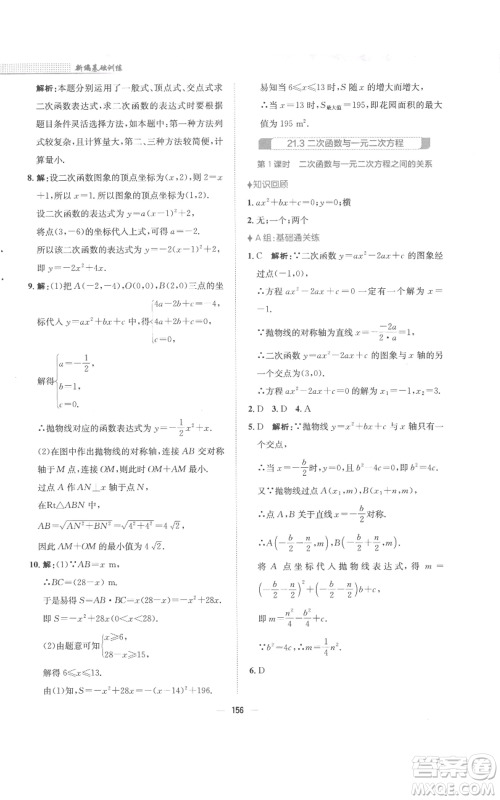 新编基础训练
解析:本题分别运用了一般式、顶点式、交点式求
二次函数表达式,求二次函数的表达式时,要根据
题目条件灵活选择方法,如本题,第一种方法列式
较复杂,计算量大,第二种、第三种方法列式简单,
计算量小.
8. 解:设二次函数图象的顶点坐标为(x,2),则2=x
+1,
∴x=1.
∴图象的顶点坐标为(1,2).
设二次函数的表达式为y=a(x-1)²+2.
将点(2,0)代入上式,可得0=a(2-1)²+2.
解得a=-2.
∴二次函数的表达式为y=-2(x-1)²+2.
即y=-2x²+4x.
9. 解:(1)把A(-2,-4),O(0,0),B(2,0)三点的坐
标代入y=ax²+bx+c,得{4a-2b+c=-4, 4a+2b+c=0, c=0.
解得{a=-1/2, b=1, c=0.
∴抛物线对应的函数表达式为y=-1/2x²+x.
(2)在图中作出抛物线的对称轴,连接AB交对称
轴于M点,连接OM,此时OM+AM最小.
过点A作AN⊥x轴于点N,
在Rt△ABN中,
AB=√(AN²+BN²)=√(4²+4²)=4√2.
因此OM+AM的最小值为4√2.
10. 解:(1)∵AB=x m,
∴BC=(28-x)m.
于是易得S=AB·BC=x(28-x)=-x²+28x.
即S=-x²+28x(0<x<28).
(2)由题意可知{x≥6, 28-x≥15.
解得6≤x≤13.
由(1)知,S=-x²+28x=-(x-14)²+196.
易知当6≤x≤13时,S随x的增大而增大,
∴当x=13时,S最大值=195,即花园面积的最大
值为195 m².
21.3 二次函数与一元二次方程
第1课时 二次函数与一元二次方程之间的关系
知识回顾
1. ax²+bx+c=0;横
2. 无;一个;两个
A组:基础通关练
1. C 解析:∵二次函数y=ax²-2ax+c的图象经过
点(-1,0),
∴方程ax²-2ax+c=0一定有一个解为x=-1.
∵抛物线的对称轴为直线x=-(-2a)/(2·a)=1,
∴二次函数y=ax²-2ax+c的图象与x轴的另一
个交点为(3,0).
∴方程ax²-2ax+c=0的解为x₁=-1,x₂=3.
2. D 3. D 4. A
5. D 解析:∵抛物线y=x²+bx+c与x轴只有一
个交点,
∴当x=-b/2时,y=0,且b²-4c=0,即b²=4c.
∵点A(x₁,m),B(x₁+n,m),
∴点A,B关于直线x=-b/2对称.
∴A(-b/2-n/2,m),B(-b/2+n/2,m).
将A点坐标代入抛物线表达式,得m=
(-b/2-n/2)²+b(-b/2-n/2)+c,
即m=n²/4-b²/4+c.
∵b²=4c,∴m=1/4n².
6. D
156